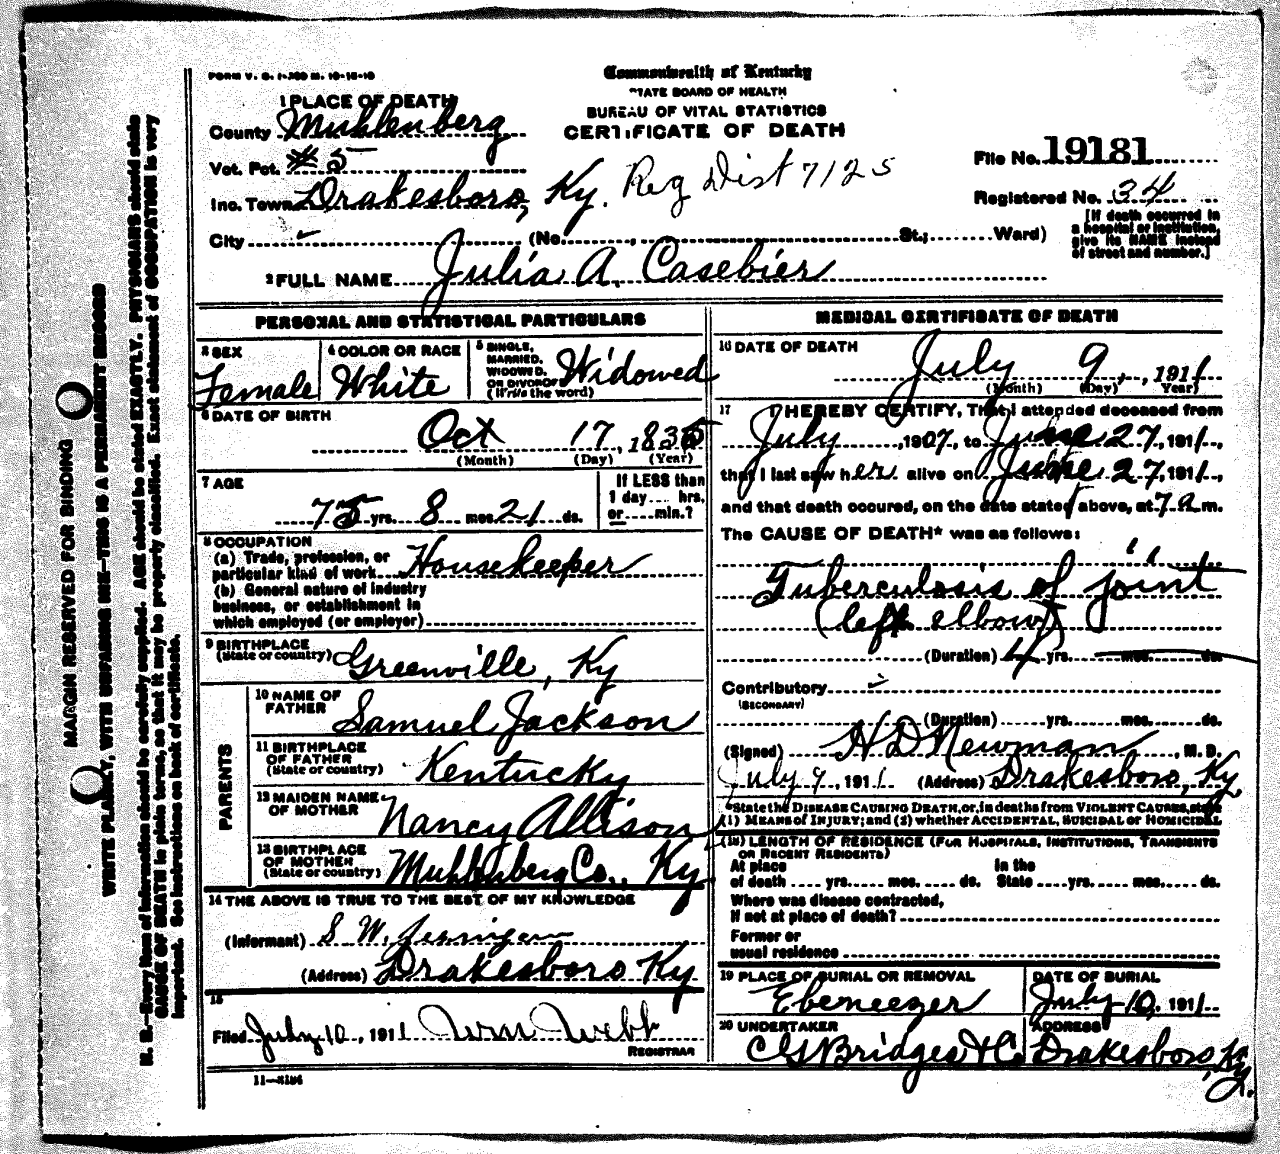 FORM V. S. 1-
Commonwealth of Kentucky
STATE BOARD OF HEALTH
BUREAU OF VITAL STATISTICS
CERTIFICATE OF DEATH
1 PLACE OF DEATH
County Muhlenberg
Vot. Pct. #5
Inc. Town Drakesboro, Ky. Reg Dist 7125
City (No. , St.; Ward)
File No. 19181
Registered No. 34
[If death occurred in
a hospital or institution,
give its NAME instead
of street and number.]
2 FULL NAME Julia A. Casebier
PERSONAL AND STATISTICAL PARTICULARS
3 SEX
Female
4 COLOR OR RACE
White
5 SINGLE,
MARRIED,
WIDOWED,
OR DIVORCED
(Write the word)
Widowed
6 DATE OF BIRTH
Oct 17, 1835
(Month) (Day) (Year)
7 AGE
75 yrs. 8 mos. 21 ds.
If LESS than
1 day.... hrs.
or.....min.?
8 OCCUPATION
(a) Trade, profession, or
particular kind of work Housekeeper
(b) General nature of industry
business, or establishment in
which employed (or employer)
9 BIRTHPLACE
(State or country) Greenville, Ky
PARENTS
10 NAME OF
FATHER Samuel Jackson
11 BIRTHPLACE
OF FATHER
(State or country) Kentucky
12 MAIDEN NAME
OF MOTHER Nancy Allison
13 BIRTHPLACE
OF MOTHER
(State or country) Muhlenberg Co., Ky.
14 THE ABOVE IS TRUE TO THE BEST OF MY KNOWLEDGE
(Informant) S W.
(Address) Drakesboro Ky
15
Filed July 10, 1911 Wm Webb
REGISTRAR
11-
MEDICAL CERTIFICATE OF DEATH
16 DATE OF DEATH
July 9, 1911
(Month) (Day) (Year)
17 I HEREBY CERTIFY, That I attended deceased from
July, 1907, to June 27, 1911,
that I last saw her alive on June 27, 1911,
and that death occured, on the date stated above, at 7 a m.
The CAUSE OF DEATH* was as follows:
Tuberculosis of joint
(left elbow)
(Duration) 4 yrs. mos. ds.
Contributory
(SECONDARY)
(Duration) yrs. mos. ds.
(Signed) H D Newman, M. D.
July 9, 1911 (Address) Drakesboro, Ky
*State the DISEASE CAUSING DEATH, or, in deaths from VIOLENT CAUSES, state
(1) MEANS of INJURY; and (2) whether ACCIDENTAL, SUICIDAL or HOMICIDAL
(18) LENGTH OF RESIDENCE (FOR HOSPITALS, INSTITUTIONS, TRANSIENTS
OR RECENT RESIDENTS)
At place In the
of death .... yrs. mos. ds. State yrs. mos. ds.
Where was disease contracted,
if not at place of death?
Former or
usual residence
19 PLACE OF BURIAL OR REMOVAL
Ebeneezer
DATE OF BURIAL
July 10, 1911
20 UNDERTAKER
C G Bridges & Co
ADDRESS
Drakesboro, Ky.
MARGIN RESERVED FOR BINDING
WRITE PLAINLY, WITH UNFADING INK—THIS IS A PERMANENT RECORD
N. B.—Every item of information should be carefully supplied. AGE should be stated EXACTLY. PHYSICIANS should state
CAUSE OF DEATH in plain terms, so that it may be properly classified. Exact statement of OCCUPATION is very
important. See instructions on back of certificate.